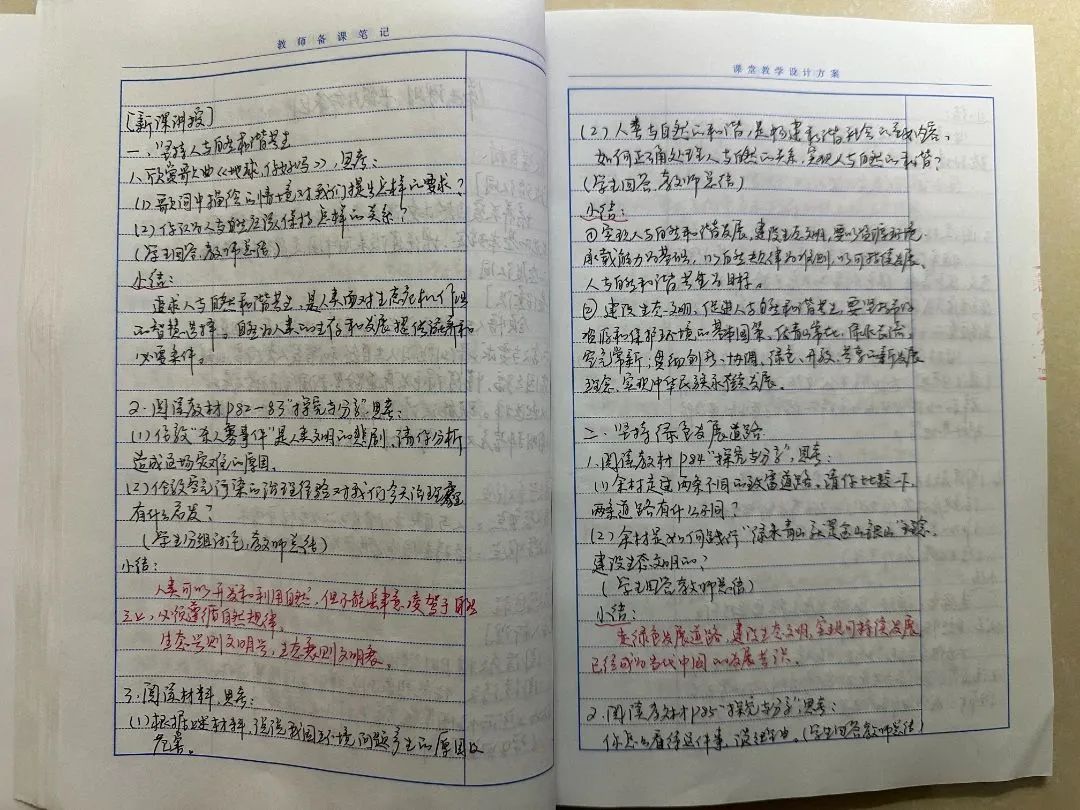 教师备课笔记
[新课讲授]
一、坚持人与自然和谐共生
1、欣赏歌曲《地球,你好吗》,思考:
(1)歌词中描绘的情境对我们提出怎样的要求?
(2)你认为人与自然应该保持怎样的关系?
(学生回答,教师总结)
小结:
追求人与自然和谐共生,是人类面对生态危机作出
的智慧选择。自然为人类的生存和发展提供
必要条件。
2.阅读教材P82-83"探究与分享",思考:
(1)伦敦"杀人雾事件"是人类文明的悲剧,请你分析
造成这场灾难的原因。
(2)伦敦空气污染的治理经验对我们今天治理雾霾
有什么启发?
(学生分组讨论,教师总结)
小结:
人类可以开发和利用自然,但不能肆意凌驾于自然
之上,必须遵循自然规律。
生态兴则文明兴,生态衰则文明衰。
3.阅读材料,思考:
(1)根据上述材料,说说我国环境问题产生的原因及
危害。
课堂教学设计方案
(2)人类与自然的和谐,是构建和谐社会的重要内容。
如何正确处理人与自然的关系,实现人与自然的和谐?
(学生回答,教师总结)
小结:
①实现人与自然和谐发展,建设生态文明,要以资源环境
承载能力为基础,以自然规律为准则,以可持续发展、
人与自然和谐共生为目标。
②建设生态文明,促进人与自然和谐共生,要坚持节约
资源和保护环境的基本国策,
贯彻创新、协调、绿色、开放、共享的新发展
理念,实现中华民族永续发展。
二、坚持绿色发展道路
1.阅读教材P84"探究与分享",思考:
(1)余村走过两条不同的致富道路,请你比较一下,
两条道路有什么不同?
(2)余村是如何践行"绿水青山就是金山银山"理念,
建设生态文明的?
(学生回答,教师总结)
小结:
走绿色发展道路,建设生态文明,实现可持续发展
已经成为当代中国的发展共识。
2.阅读教材P85"探究与分享",思考:
你怎么看待这件事,说说理由。(学生回答,教师总结)